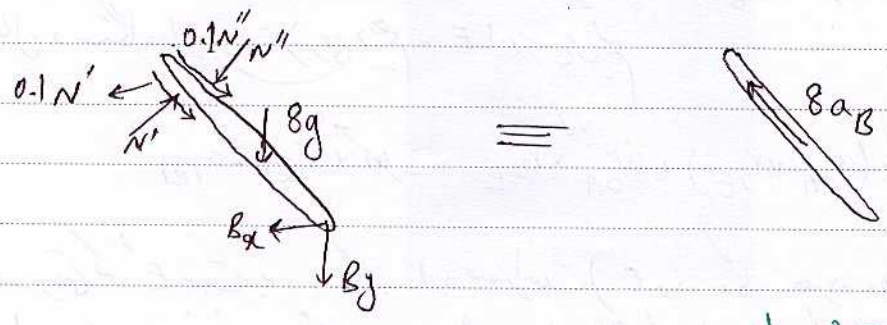 0.1N''
N''
0.1N'
N'
8g
≡
8a_B
B_x
B_y